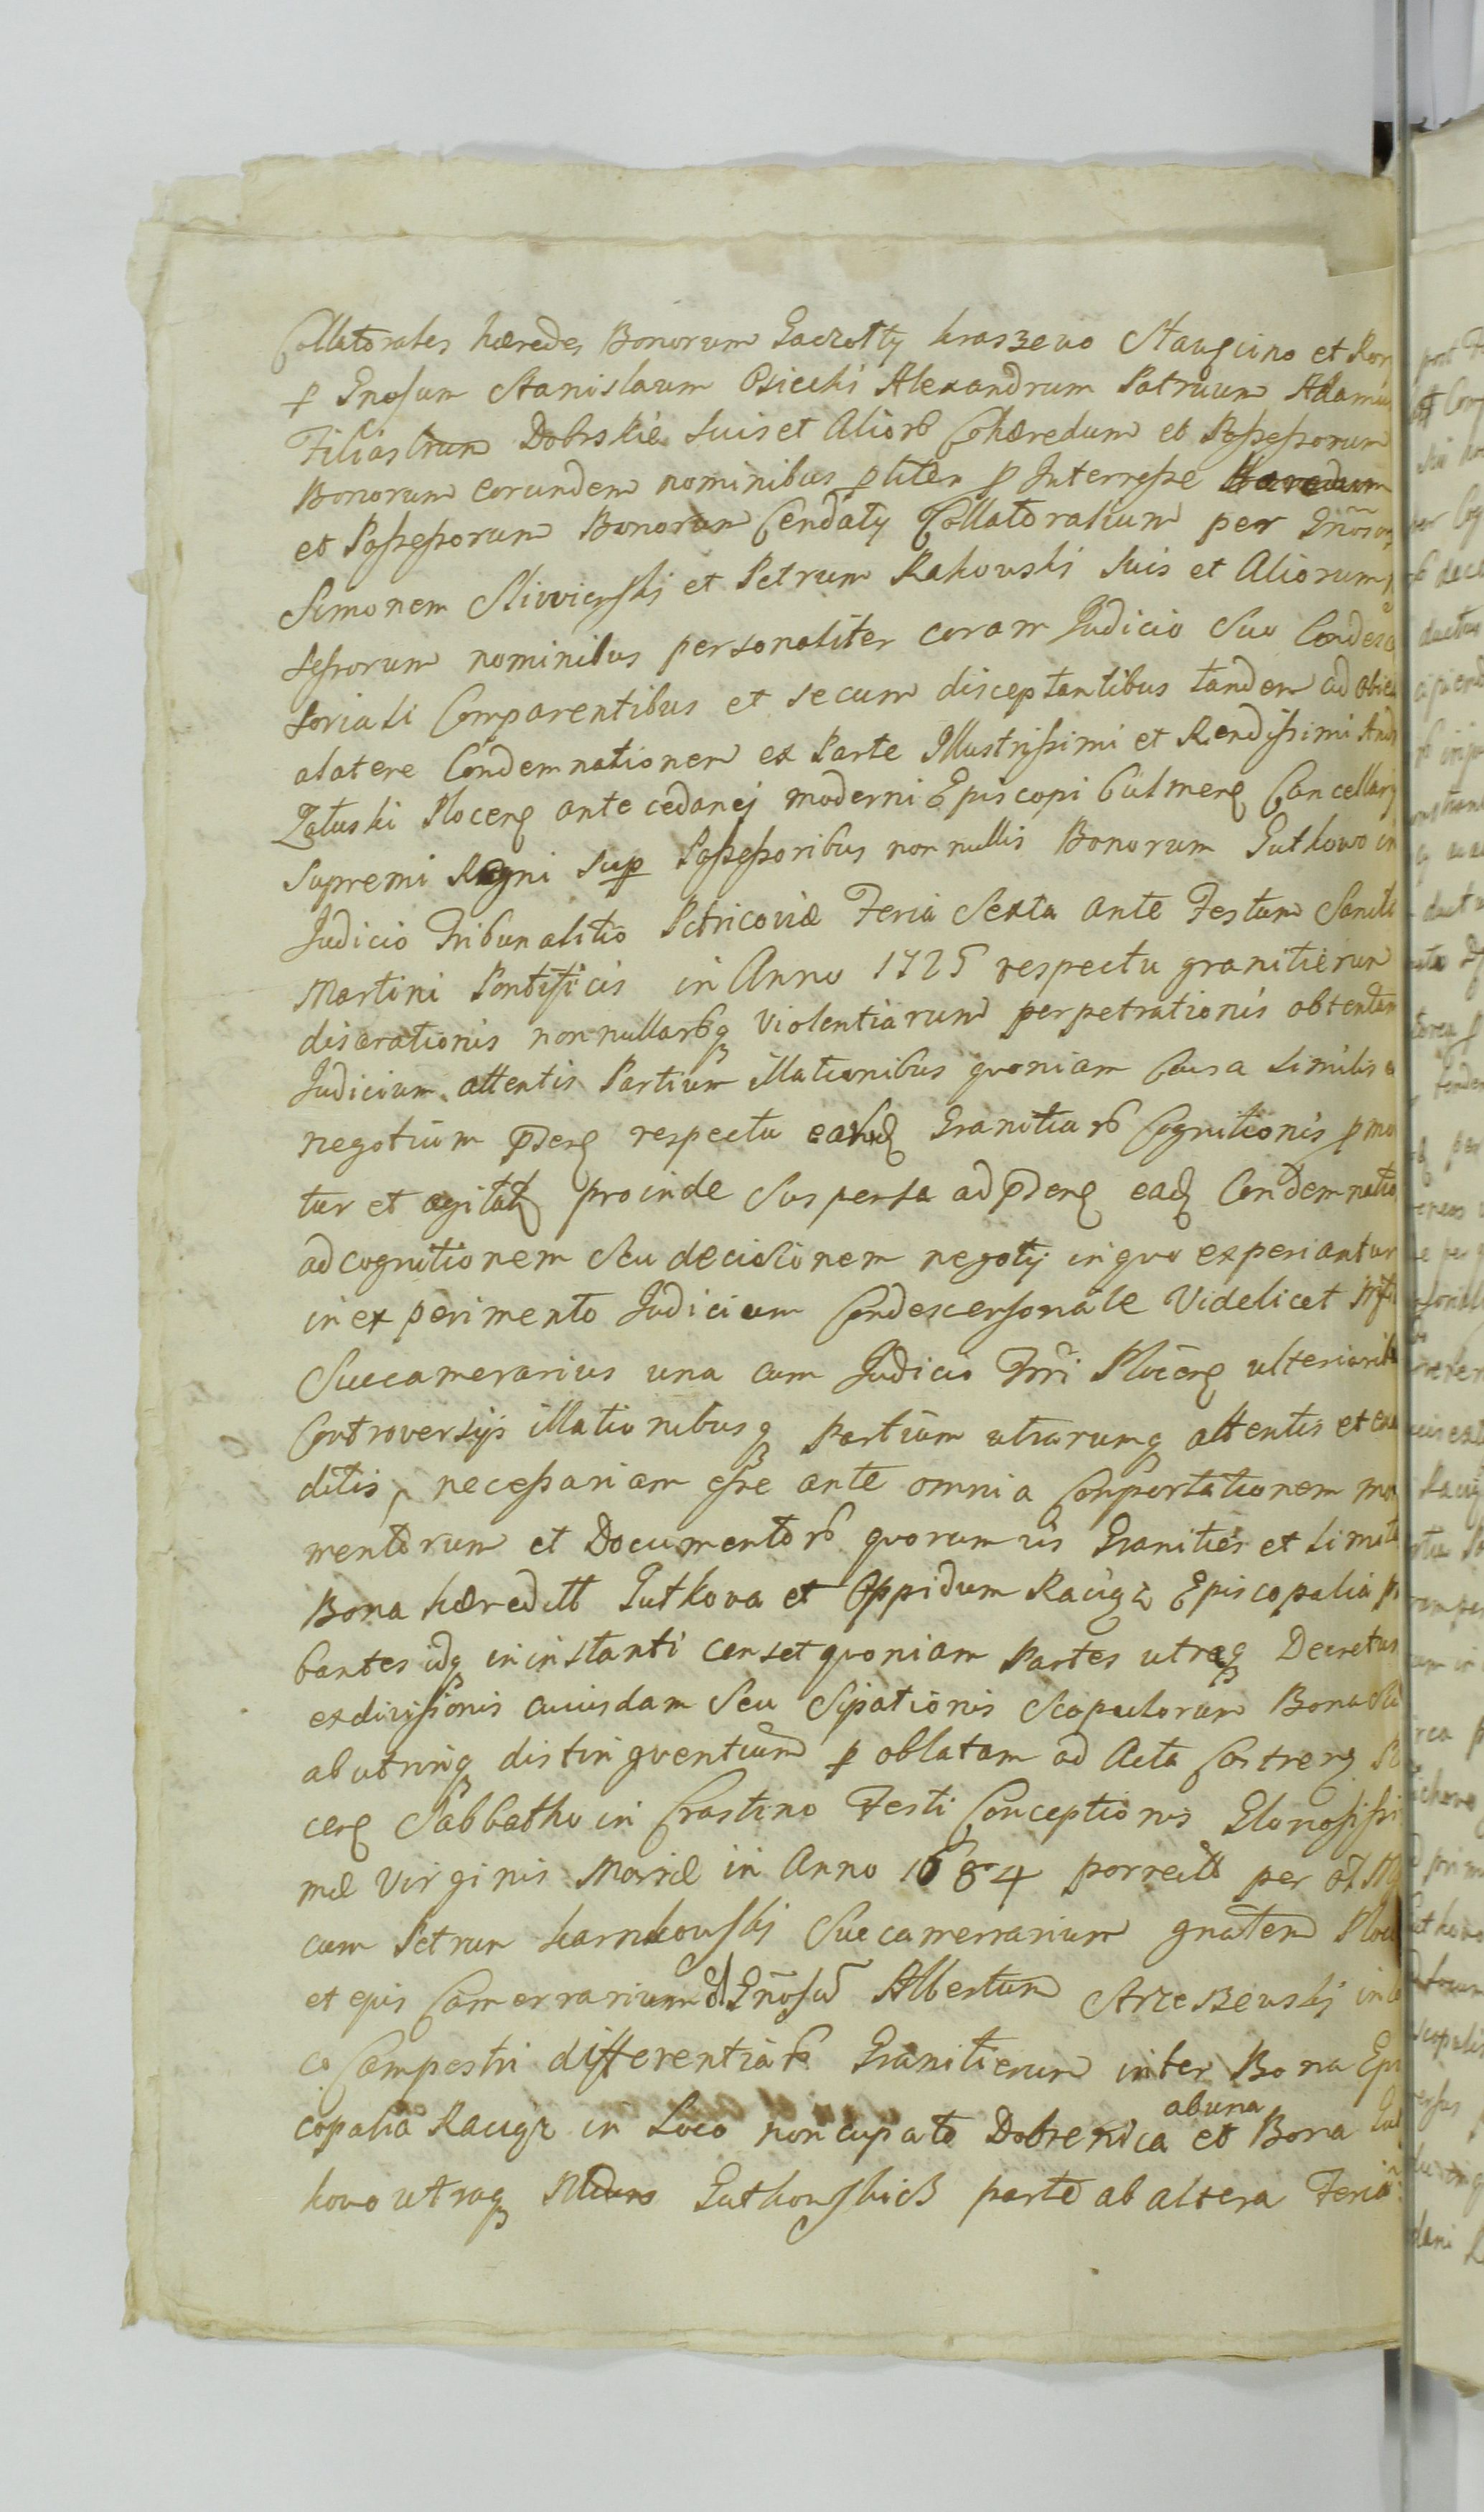 Collatorales hæredes Bonorum Gaczolty Kraszewo Stauguino et Kor
p Gnosum Stanislaum Osiecki Alexandrum Patruum Adamu
Filiastrum Dobrskie suis et Aliorb Cohæredum et Possessorum
Bonorum eorundem nominibus pliter p Interresse Hæredum
et Possessorum Bonorum Cendaty Collatoralium per Gnoso
Simonem Sliwierski et Petrum Rakowski suis et Aliorum
sessorum nominibus personaliter coram Judicio suo Condesc
soriali Comparentibus et secum disceptantibus tandem ad obie
alatere Condemnationem ex Parte Illustrissimi et Rendissimi And
Załuski Plocenq antecedanej moderni Episcopi Culmenq Cancellarj
Supremi Regni sup Possessoribus nonnullis Bonorum Gutkowo in
Judicio Tribunalitio Petricoviæ Feria Sexta ante Festum Sancti
Martini Pontificis in Anno 1725 respectu granitierum
disarationis nonnullarbq violentiarum perpetrationis obtentam
Judicium attentis Partium illationibus quoniam Causa similis e
negotium pdenq respectu earud Granitiarb Cognitionis pmo
tur et agitat proinde suspensa ad pdenq eadq Condemnatio
ad cognitionem seu decisionem negotij in quo experiantur
in experimento Judicium Condescensoriale Videlicet Mfi
Succamerarius una cum Judicio Trri Plocenq ulterioribu
Controversijs illationibusq Partium utrarumq attentis et exa
ditis, necessariam esse ante omnia Comportationem mo
mentorum et Documentorb quorumvis Granities et limite
Bona hæreditt Gutkova et Oppidum Raciąz Episcopalia p
bantes idq in instanti censet quoniam Partes utraq Decretum
exdivisionis cuiusdam seu Sipationis Scopulorum Bona sua
abutrinq distinguentium p oblatam ad Acta Castrenq Pl
cenq Sabbatho in Crastino Festi Conceptionis Gloriosissi
mæ Virginis Mariæ in Anno 1684 porrectt per olt Mg
cum Petrum Karnkowski Succamerrarium gnatem Ploc
et ejus Camerrarium olt Gnosum Albertum Strzeszewski in lo
co Campestri differentiarb Granitierum inter Bona Epi
copalia Raciąz in Loco noncupato Dobrenica abuna et Bona Gut
kowo utraq Gutkowskich parte ab altera Feria